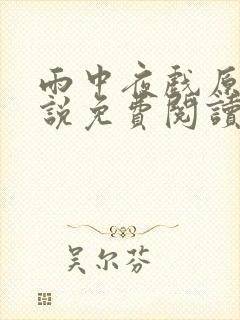 雨中夜戲原
說免費閱讀
吴尔芬